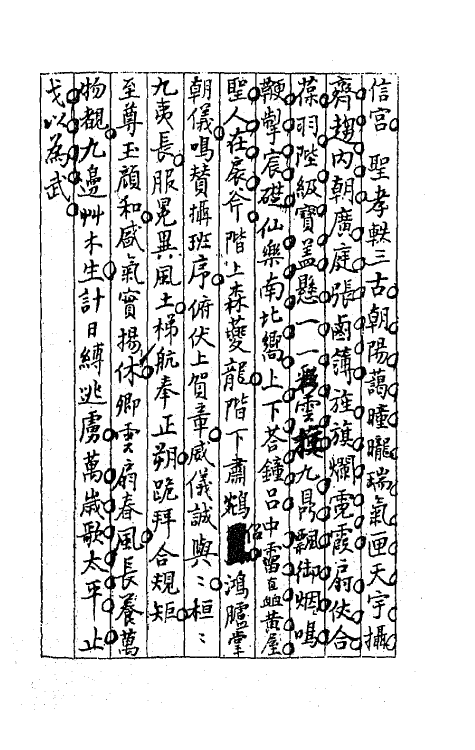 信宮　聖孝軼三古朝陽藹曈曨瑞氣匝天宇攝
齊趨內朝廣庭張鹵簿旌旗爛霓霞扇伏合
葆羽陛級寶盖懸一一彩雲擁九鼎飄御烟鳴
鞭聲扆礎仙樂南北嚮上下荅鐘呂中霤直黃屋
聖人在扆介階上森夔龍階下肅鵷侶鴻臚掌
朝儀鳴贊攝班序俯伏上賀章威儀誠與〻桓〻
九夷長服冕異風土梯航奉正朔跪拜合規矩
至尊玉顏和感氣實揚休卿雲扇春風長養萬
物覩九邊艸木生計日縛逃虜萬歲歌太平止
戈以為武